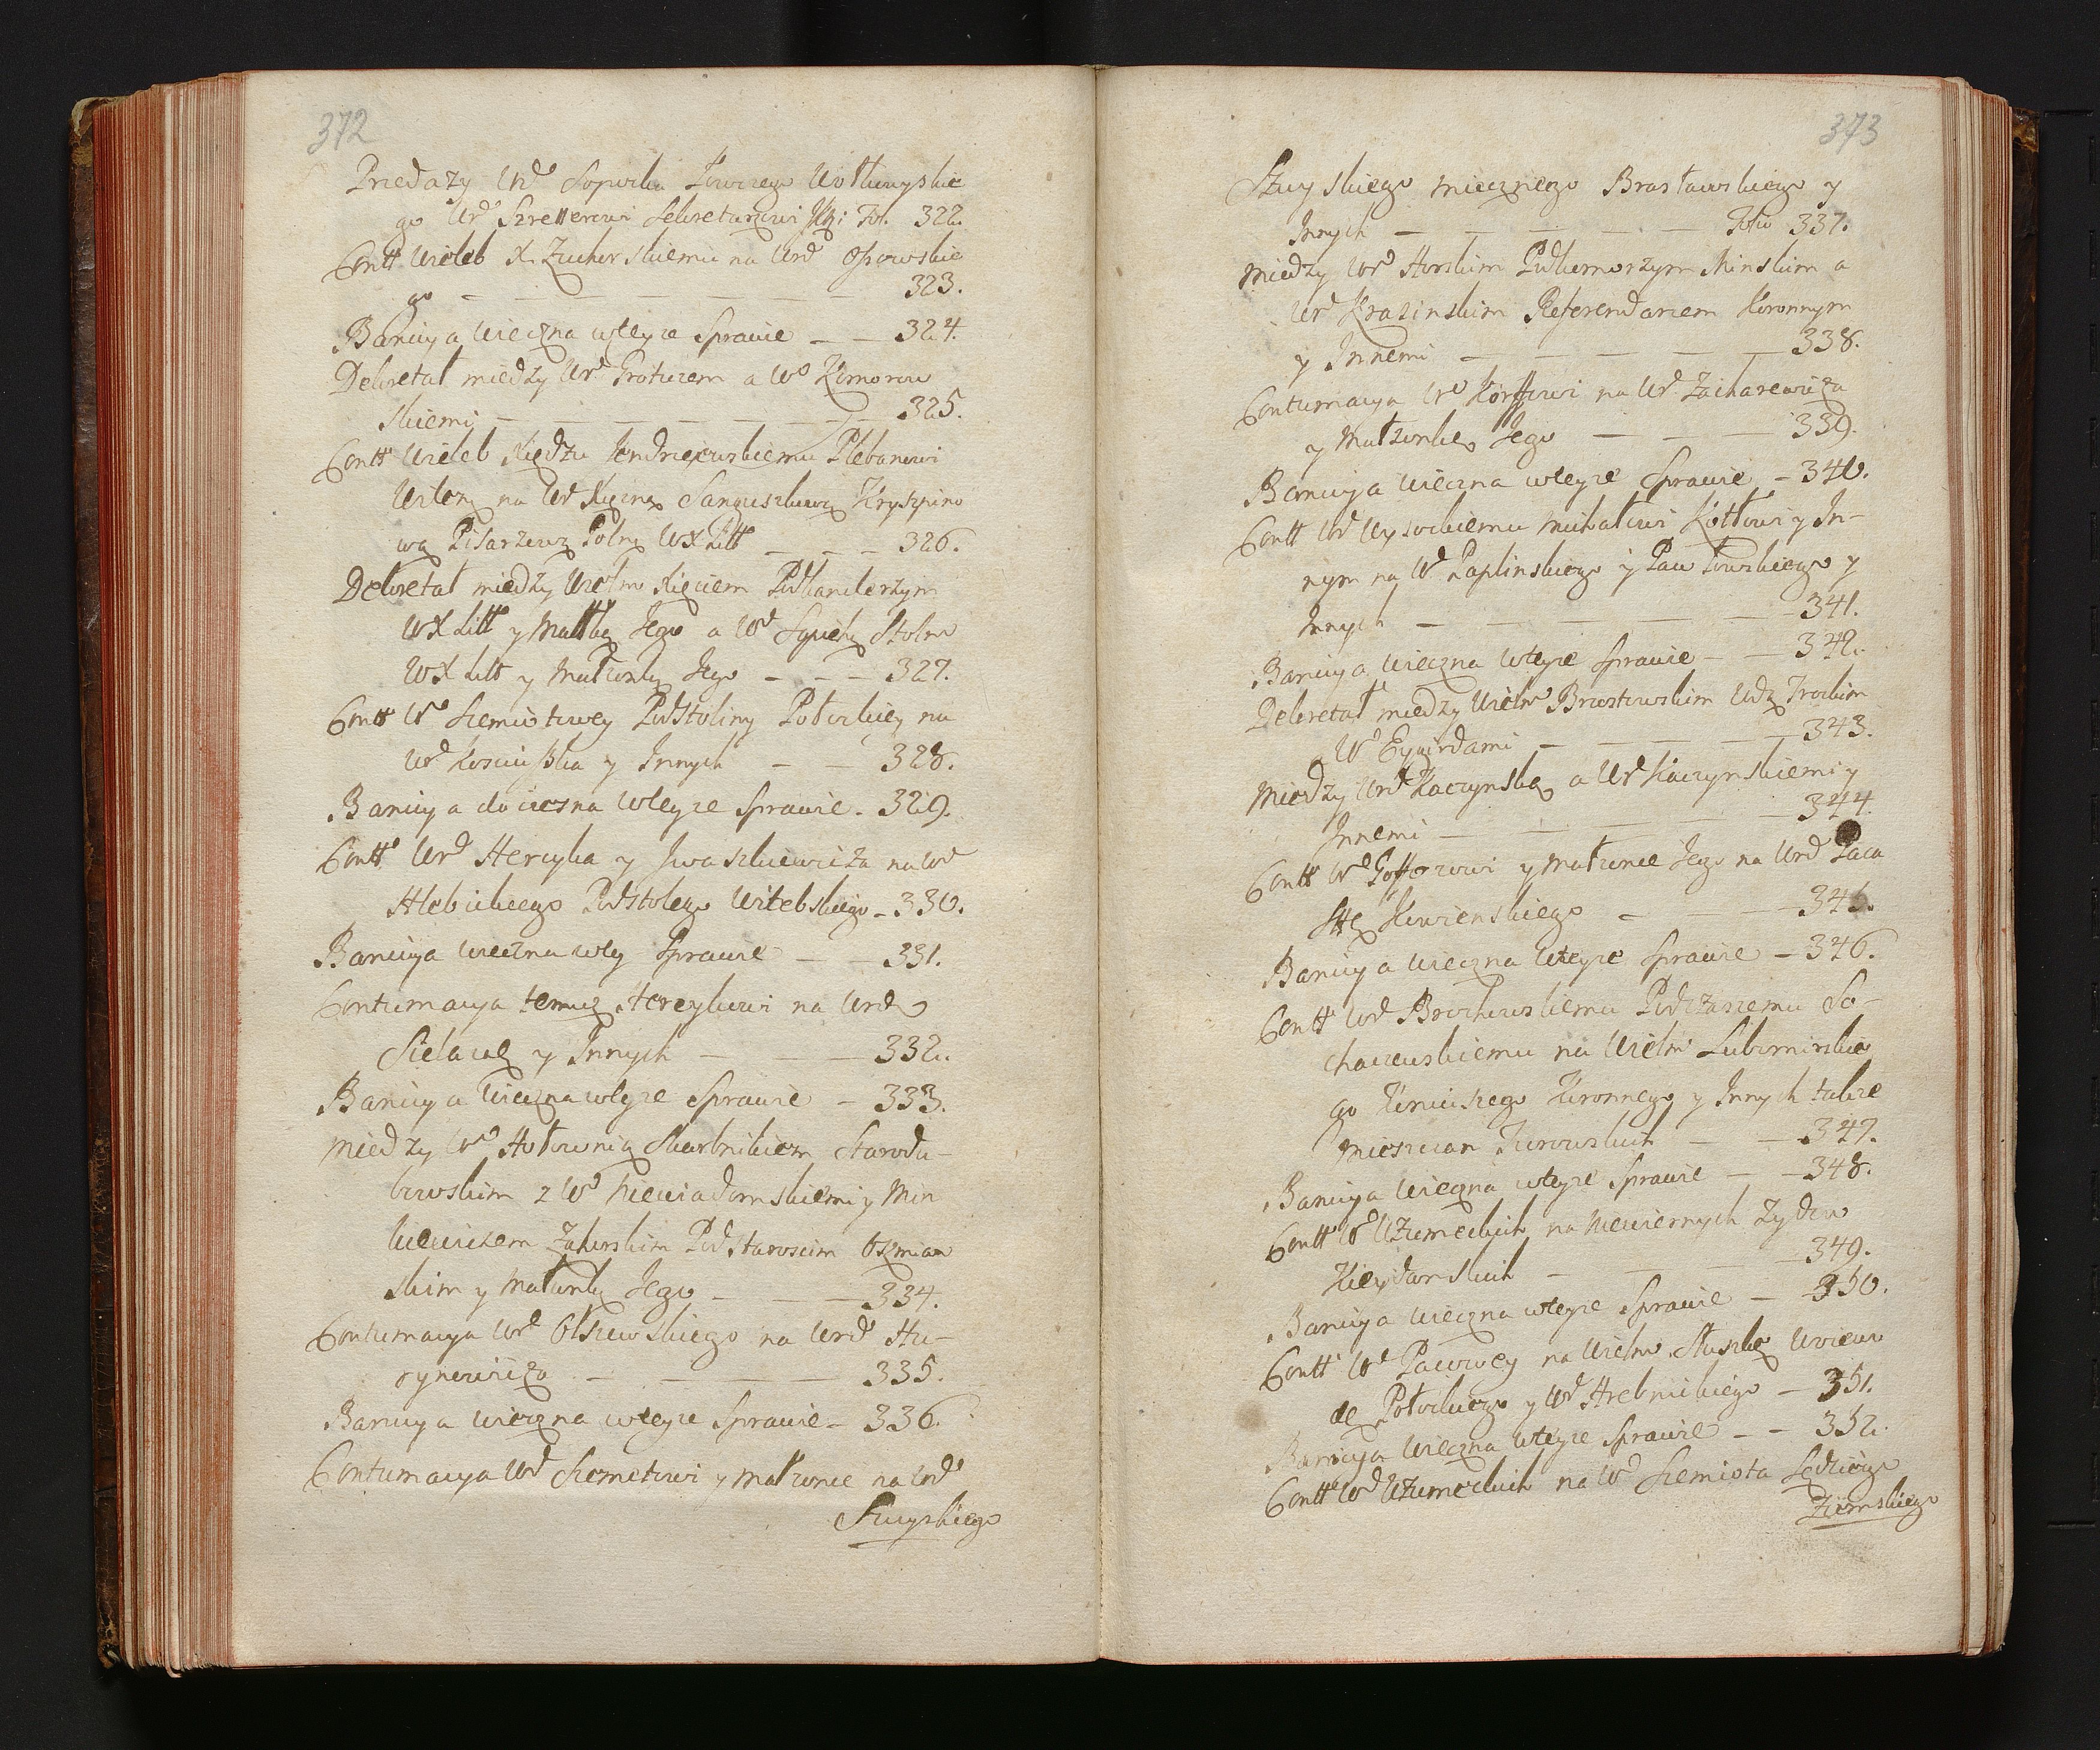 372
Przedaży Urd Sopoćka Łowczego Wołkowyskie
go Urd Szretterowi Sekretarzowi JKM: Fol. 322.
Contt Wieleb X. Zucherskiemu na Urd Ossowskie
go — — — — — — 323.
Banicya wieczna wteyże Sprawie — — 324.
Dekretał między Urd Grotuzem a Wo Komorow
skiemi — — — — — — 325.
Contt Wieleb Xiędzu Jendrzejewskiemu Plebanowi
na Ur Xiężnę Sanguszkową Kryszpino
wą Pisarzewą Polną WXLitt — — — 326.
Dekretał między Wielm Xięciem Podkanclerzym
WXLitt y Małkę Jego a Wd Sapiehą Stoln
WXLitt y Małżonką Jego — — — 327.
Contt Wd Szemiotowey Podstoliny Połockiey na
Ur Kosciuszka y Innych — — 328.
Banicya doczesna wteyże Sprawie — 329.
Contt Urd Hercyka y Jwaszkiewicza na Ur
Hlebickiego Podstolego Witebskiego — 330.
Banicya wieczna wtey Sprawie — — 331.
Contumacya temuż Hercykowi na Urd
Sielawę y Innych — — — 332.
Banicya Wieczna wteyże Sprawie — 333.
Między Wd Hołownią Skarbnikiem Starodu-
bowskim z Wd Niewiadomskiemi y Min
kiewiczem Zahorskim Podstarościm Oszmian
skim y Małżonką Jego — — — 334.
Contumacya Urd Olszewskiego na Urd Hu-
rynowicza — — — — 335.
Banicya wieczna wteyże Sprawie — 336.
Contumacya Urd Szemetowi y małżonce na Urd
Szuyskiego
373
Szuyskiego Miecznego Brasławskiego y
Innych — — — — — Folio 337.
Między Wd Horskim Podkomorzym Minskim a
Urd Krasinskim Referendarzem Koronnym
y Innemi — — — — — 338.
Contumacya Wd Korffowi na Ur Zacharewicza
y Małżonkę Jego — — — 339.
Banicya Wieczna wteyże Sprawie — 340.
Contt Ur Wysockiemu Michałowi Kotłowi y In-
nym na Wd Paplinskiego y Pawłowskiego y
Innych — — — — — 341.
Banicya wieczna wteyże Sprawie — — 342.
Dekretał między Wielm Brzostowskim Wdą Trockim
a Wd Eygirdami — — — — 343.
Między Urd Kaczynską a Urd Kaczynskiemi y
Innemi — — — — — 344.
Contt Wd Goffozowi y małżonce Jego na Urd Paca
Sttę Kowienskiego — — — 345.
Banicya wieczna wteyże Sprawie — 346.
Contt Urd Brochowskiemu Podczaszemu So-
chaczewskiemu na Wielm Lubomirskie
go Koniuszego Koronnego y Innych także
Mieszczan Turowskich — — 347.
Banicya wieczna wteyże Sprawie — — 348.
Contt Wd Uzumeckich na Niewiernych Żydow
Kieydanskich — — — — 349.
Banicya wieczna wteyże Sprawie — 350.
Contt Wd Pacowey na Wielm Słuszkę Woiewo
dę Połockiego y Wd Hrebnickiego — 351.
Banicya Wieczna wteyże Sprawie — — 352.
Contt Wd Uzumeckich na Wd Szemiota Sędziego
Ziemskiego